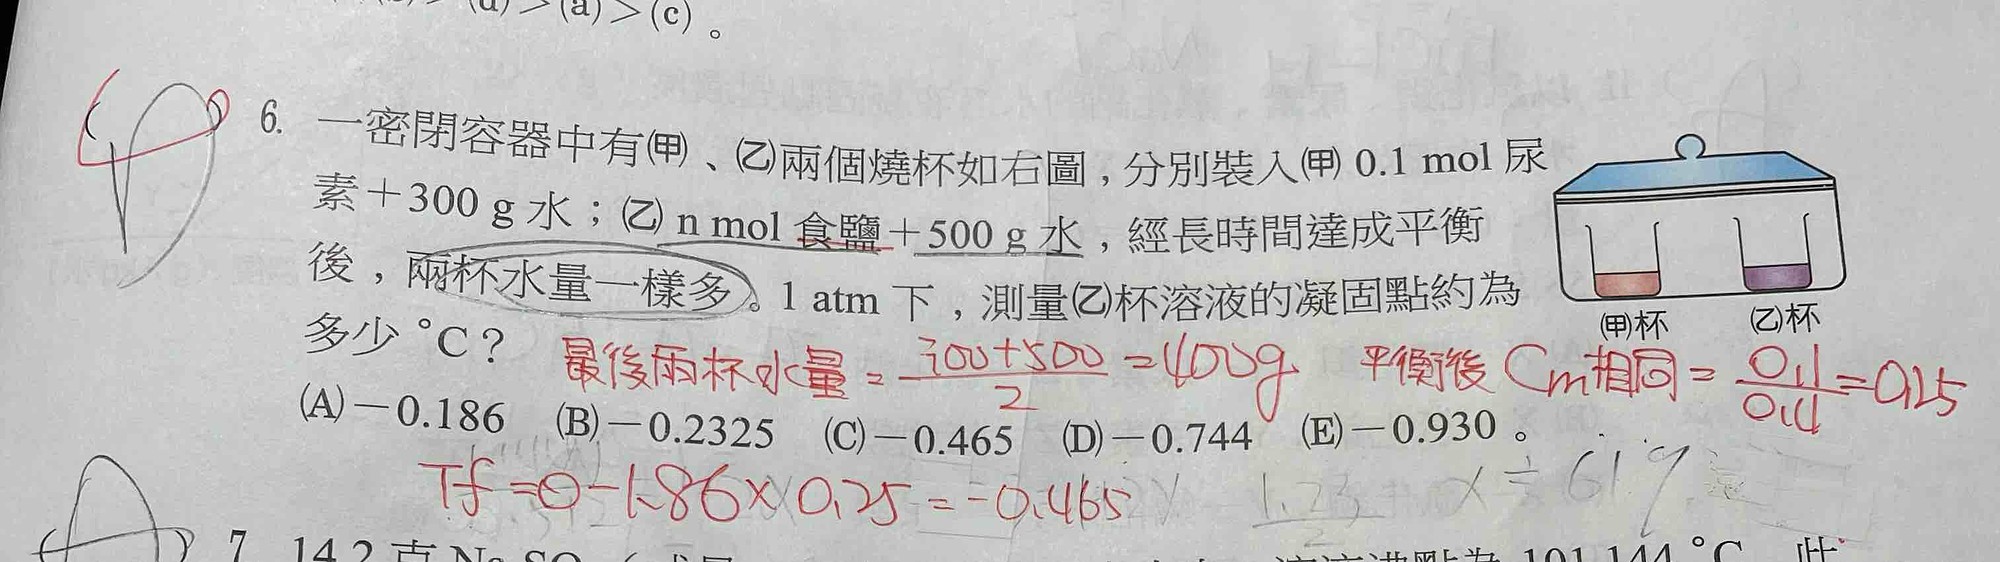 >(d)>(a)>(c)。
6. 一密閉容器中有㈙、㈚兩個燒杯如右圖,分別裝入㈙ 0.1 mol 尿
素+300 g 水;(乙) n mol 食鹽+500 g 水,經長時間達成平衡
後,兩杯水量一樣多。1 atm 下,測量(乙)杯溶液的凝固點約為
多少 °C?
(甲)杯 (乙)杯
最後兩杯水量=300+500/2=400g 平衡後 Cm相同=0.1/0.4=0.25
(A)-0.186 (B)-0.2325 (C)-0.465 (D)-0.744 (E)-0.930。
Tf=0-1.86×0.25=-0.465
7 14.2 克 Na SO
101.144 °C